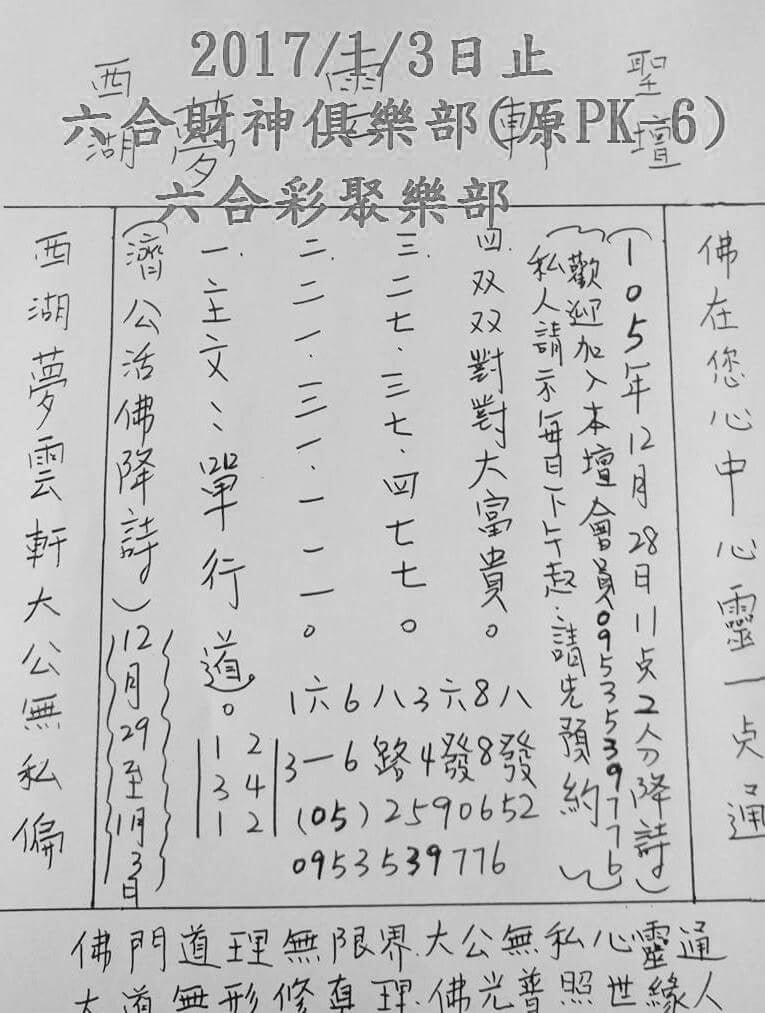 2017/1/3日止
六合財神俱樂部(原PK-6)
六合彩聚樂部
西湖夢雲軒聖壇
佛在您心中心靈一点通
(105年12月28日11点2分降詩)
(歡迎加入本壇會員0953539776
私人請示每日下午起.請先預約)
四.双双對對大富貴。
三.二七.三七.四七七。
二.二一.三一.一二一。
一.主文:單行道。
(濟公活佛降詩)
12月29至1月3日
1六6八3六8八
3一6路4發8發
(05)2590652
0953539776
1 2
3 4
1 2
西湖夢雲軒大公無私偏
佛門道理無限界.大公無私心靈通
大道無形修真理.佛光普照世緣人